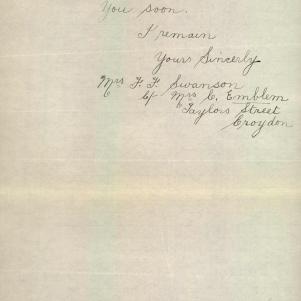 You soon.
I remain
Yours Sincerely
Mrs F. F. Swanson
c/ Mrs C. Emblem
Taylors Street
Croydon